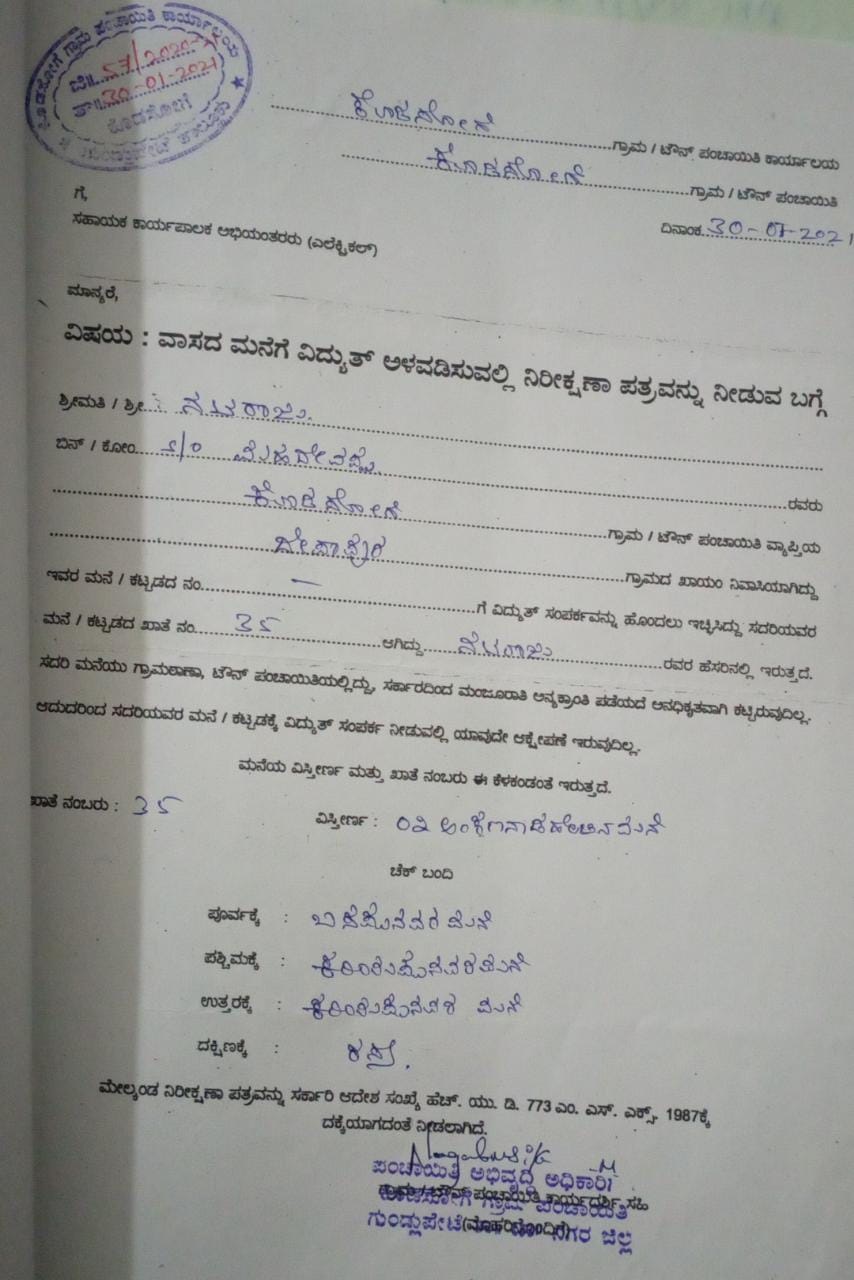 ಕೊಡಸೋಗೆ ಗ್ರಾಮ ಪಂಚಾಯಿತಿ ಕಾರ್ಯಾಲಯ
ಜಿ॥ 57/2020-21
ತಾ॥ 30-01-2021
ಕೊಡಸೋಗೆ
ಗುಂಡ್ಲುಪೇಟೆ ತಾಲೂಕು
ಕೊಡಸೋಗೆ ಗ್ರಾಮ / ಟೌನ್ ಪಂಚಾಯಿತಿ ಕಾರ್ಯಾಲಯ
ಕೊಡಸೋಗೆ ಗ್ರಾಮ / ಟೌನ್ ಪಂಚಾಯಿತಿ
ದಿನಾಂಕ 30-01-2021
ಗೆ,
ಸಹಾಯಕ ಕಾರ್ಯಪಾಲಕ ಅಭಿಯಂತರರು (ಎಲೆಕ್ಟ್ರಿಕಲ್)
ಮಾನ್ಯರೆ,
ವಿಷಯ : ವಾಸದ ಮನೆಗೆ ವಿದ್ಯುತ್ ಅಳವಡಿಸುವಲ್ಲಿ ನಿರೀಕ್ಷಣಾ ಪತ್ರವನ್ನು ನೀಡುವ ಬಗ್ಗೆ
ಶ್ರೀಮತಿ / ಶ್ರೀ ನಟರಾಜು
ಬಿನ್ / ಕೋಂ S/O ಮಹದೇವಪ್ಪ ರವರು
ಕೊಡಸೋಗೆ ಗ್ರಾಮ / ಟೌನ್ ಪಂಚಾಯಿತಿ ವ್ಯಾಪ್ತಿಯ
ದೇಪಾಪುರ ಗ್ರಾಮದ ಖಾಯಂ ನಿವಾಸಿಯಾಗಿದ್ದು
ಇವರ ಮನೆ / ಕಟ್ಟಡದ ನಂ. — ಗೆ ವಿದ್ಯುತ್ ಸಂಪರ್ಕವನ್ನು ಹೊಂದಲು ಇಚ್ಛಿಸಿದ್ದು ಸದರಿಯವರ
ಮನೆ / ಕಟ್ಟಡದ ಖಾತೆ ನಂ. 35 ಆಗಿದ್ದು ನಟರಾಜು ರವರ ಹೆಸರಿನಲ್ಲಿ ಇರುತ್ತದೆ.
ಸದರಿ ಮನೆಯು ಗ್ರಾಮಠಾಣಾ, ಟೌನ್ ಪಂಚಾಯಿತಿಯಲ್ಲಿದ್ದು, ಸರ್ಕಾರದಿಂದ ಮಂಜೂರಾತಿ ಅನ್ಯಕ್ರಾಂತಿ ಪಡೆಯದೆ ಅನಧಿಕೃತವಾಗಿ ಕಟ್ಟಿರುವುದಿಲ್ಲ.
ಆದುದರಿಂದ ಸದರಿಯವರ ಮನೆ / ಕಟ್ಟಡಕ್ಕೆ ವಿದ್ಯುತ್ ಸಂಪರ್ಕ ನೀಡುವಲ್ಲಿ ಯಾವುದೇ ಆಕ್ಷೇಪಣೆ ಇರುವುದಿಲ್ಲ.
ಮನೆಯ ವಿಸ್ತೀರ್ಣ ಮತ್ತು ಖಾತೆ ನಂಬರು ಈ ಕೆಳಕಂಡಂತೆ ಇರುತ್ತದೆ.
ಖಾತೆ ನಂಬರು : 35
ವಿಸ್ತೀರ್ಣ : 02 ಅಂಕಣ ನಾಡಹೆಂಚಿನ ಮನೆ
ಚೆಕ್ ಬಂದಿ
ಪೂರ್ವಕ್ಕೆ : ಮನೆ
ಪಶ್ಚಿಮಕ್ಕೆ : ಮನೆ
ಉತ್ತರಕ್ಕೆ : ಮನೆ
ದಕ್ಷಿಣಕ್ಕೆ : ರಸ್ತೆ.
ಮೇಲ್ಕಂಡ ನಿರೀಕ್ಷಣಾ ಪತ್ರವನ್ನು ಸರ್ಕಾರಿ ಆದೇಶ ಸಂಖ್ಯೆ ಹೆಚ್. ಯು. ಡಿ. 773 ಎಂ. ಎಸ್. ಎಕ್ಸ್. 1987ಕ್ಕೆ
ದಕ್ಕೆಯಾಗದಂತೆ ನೀಡಲಾಗಿದೆ.
ಪಂಚಾಯಿತಿ ಅಭಿವೃದ್ಧಿ ಅಧಿಕಾರಿ
ಗ್ರಾಮ / ಟೌನ್ ಪಂಚಾಯಿತಿ ಕಾರ್ಯದರ್ಶಿ ಸಹಿ
ಕೊಡಸೋಗೆ ಗ್ರಾಮ ಪಂಚಾಯಿತಿ
(ಮೊಹರಿನೊಂದಿಗೆ)
ಗುಂಡ್ಲುಪೇಟೆ ನಗರ ಜಿಲ್ಲೆ